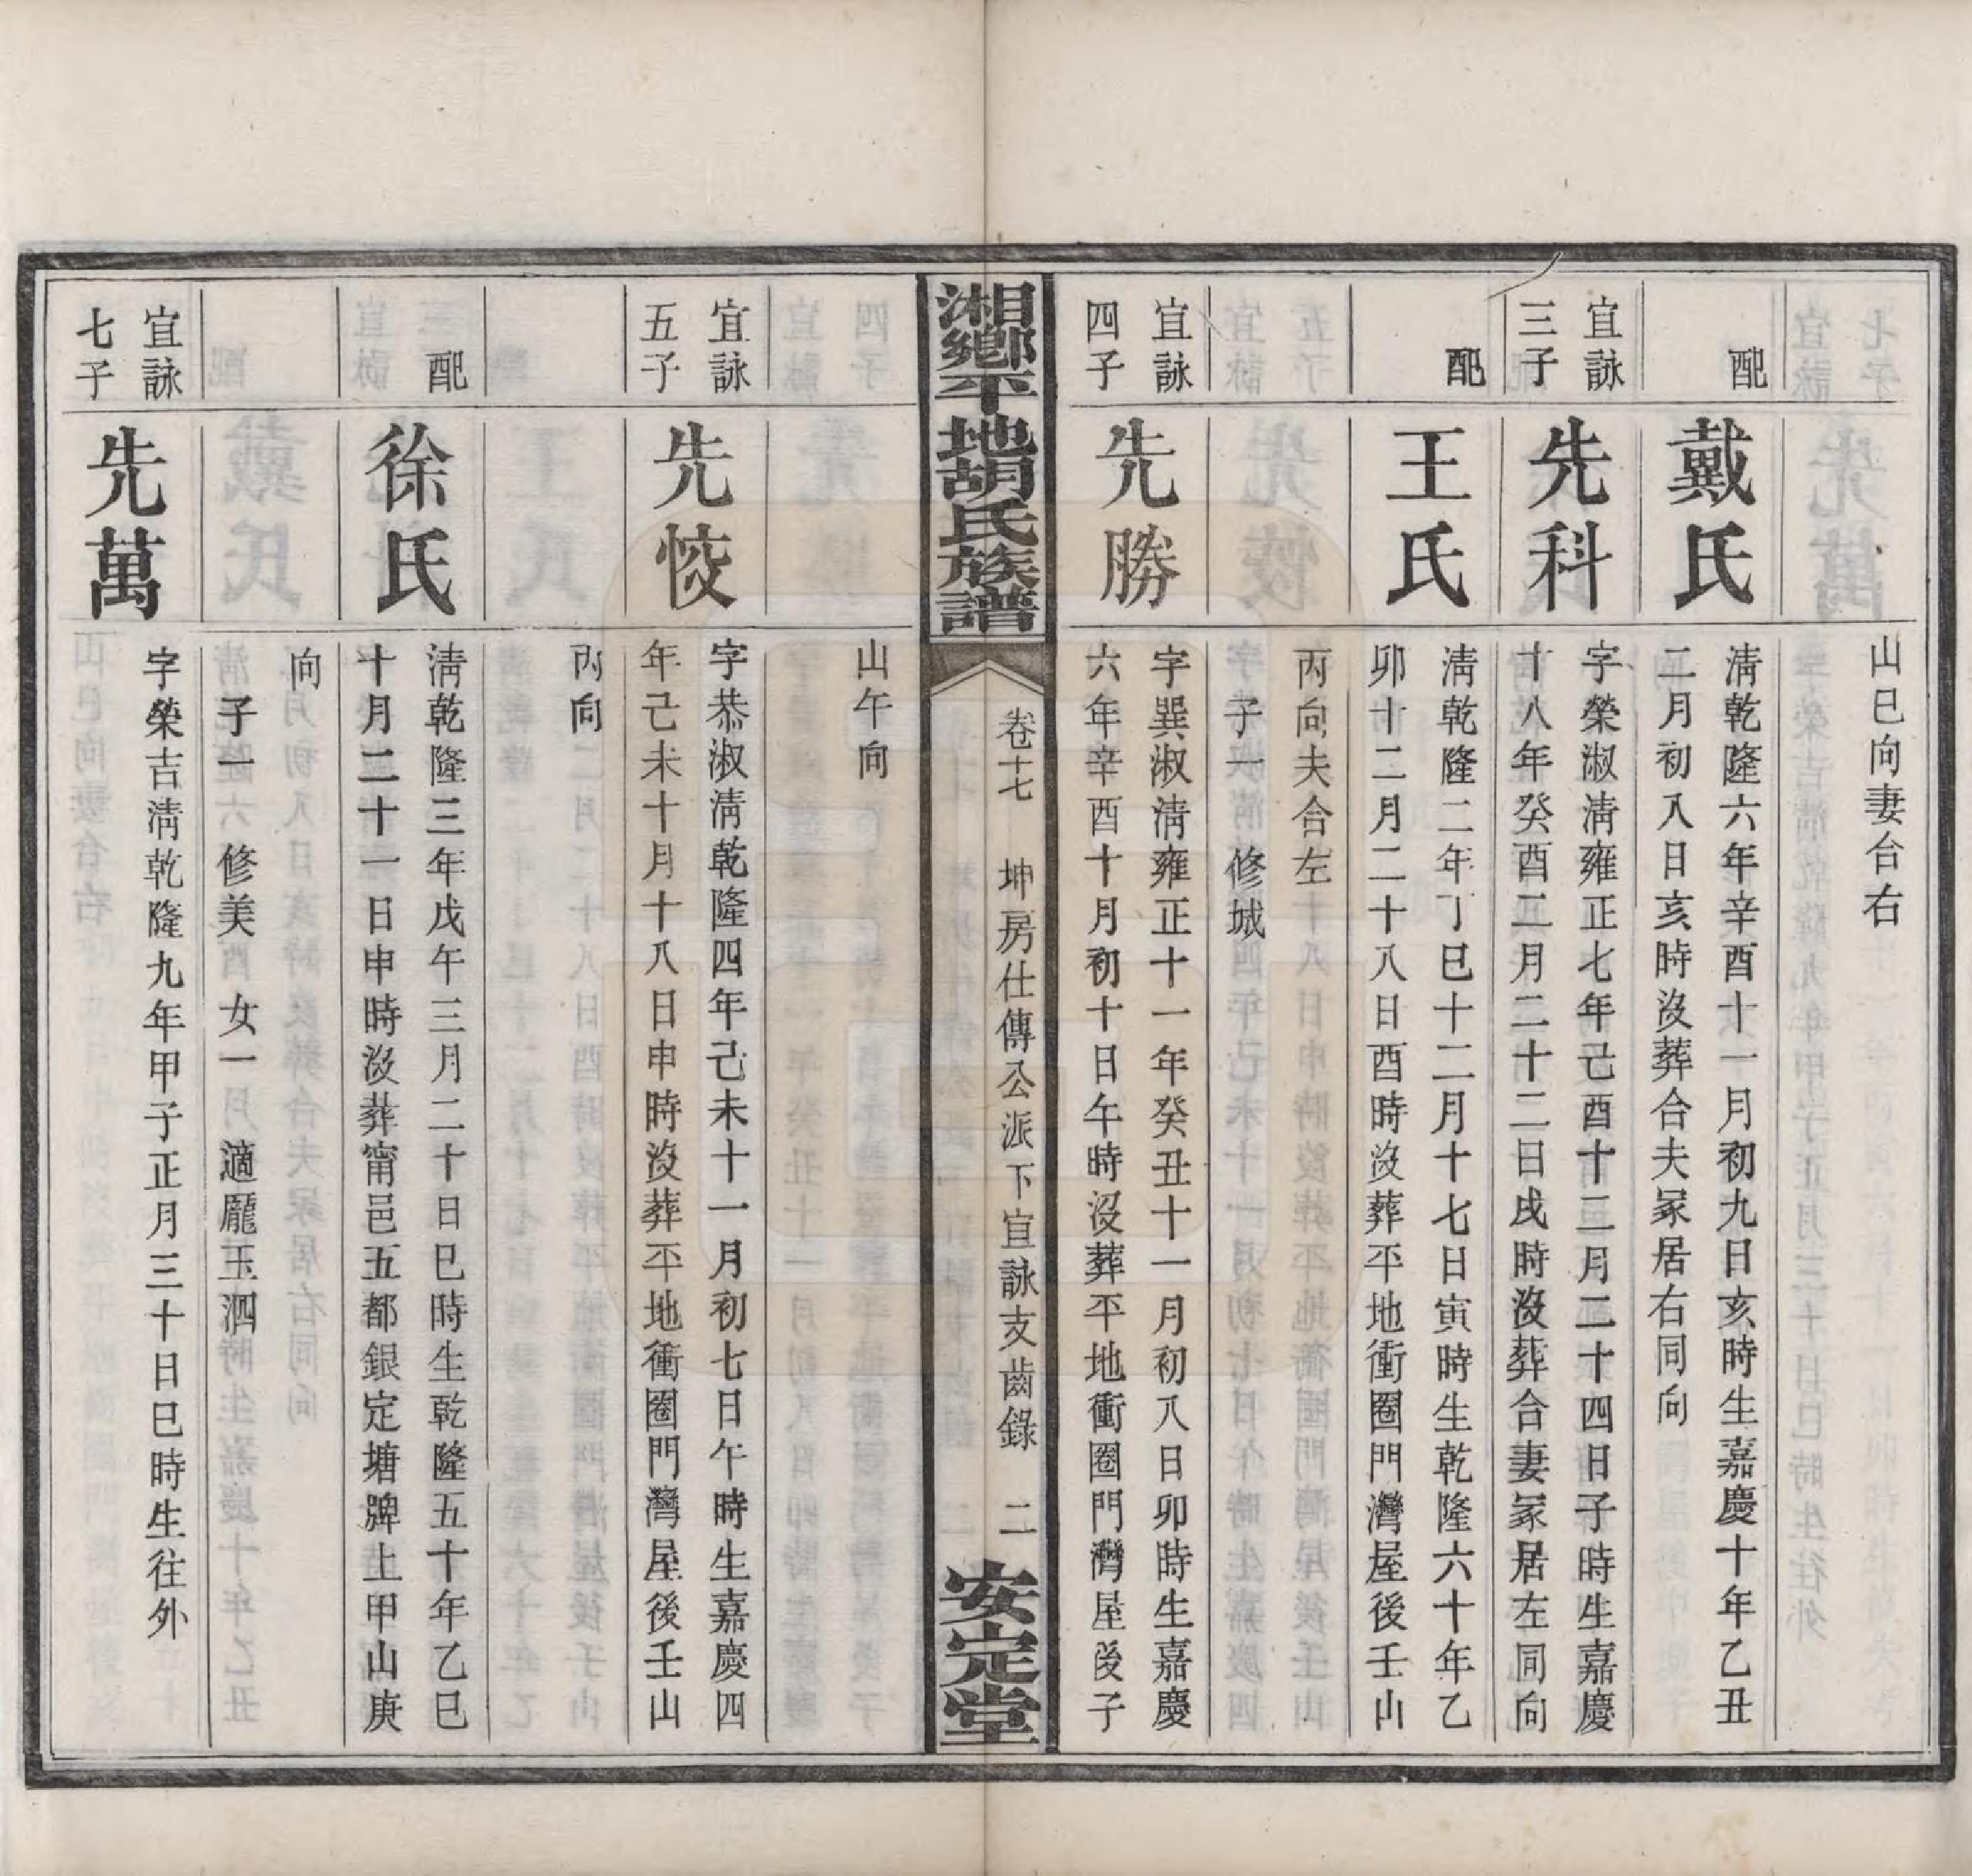 山巳向妻合右
配
戴氏
淸乾隆六年辛酉十一月初九日亥時生嘉慶十年乙丑
二月初八日亥時沒葬合夫冢居右同向
宜詠
三子
先科
字榮淑淸雍正七年己酉十二月二十四日子時生嘉慶
十八年癸酉二月二十二日戌時沒葬合妻冢居左同向
配
王氏
淸乾隆二年丁巳十二月十七日寅時生乾隆六十年乙
卯十二月二十八日酉時沒葬平地衝圈門灣屋後壬山
丙向夫合左
子一 修城
宜詠
四子
先勝
字巽淑淸雍正十一年癸丑十一月初八日卯時生嘉慶
六年辛酉十月初十日午時沒葬平地衝圈門灣屋後子
湘鄉平地胡氏族譜
卷十七 坤房仕傳公派下宜詠支齒錄 二
安定堂
山午向
宜詠
五子
先恔
字恭淑淸乾隆四年己未十一月初七日午時生嘉慶四
年己未十月十八日申時沒葬平地衝圈門灣屋後壬山
丙向
配
徐氏
淸乾隆三年戊午三月二十日巳時生乾隆五十年乙巳
十月二十一日申時沒葬甯邑五都銀定塘牌上甲山庚
向
子一 修美 女一 適龐玉泗
宜詠
七子
先萬
字榮吉淸乾隆九年甲子正月三十日巳時生往外